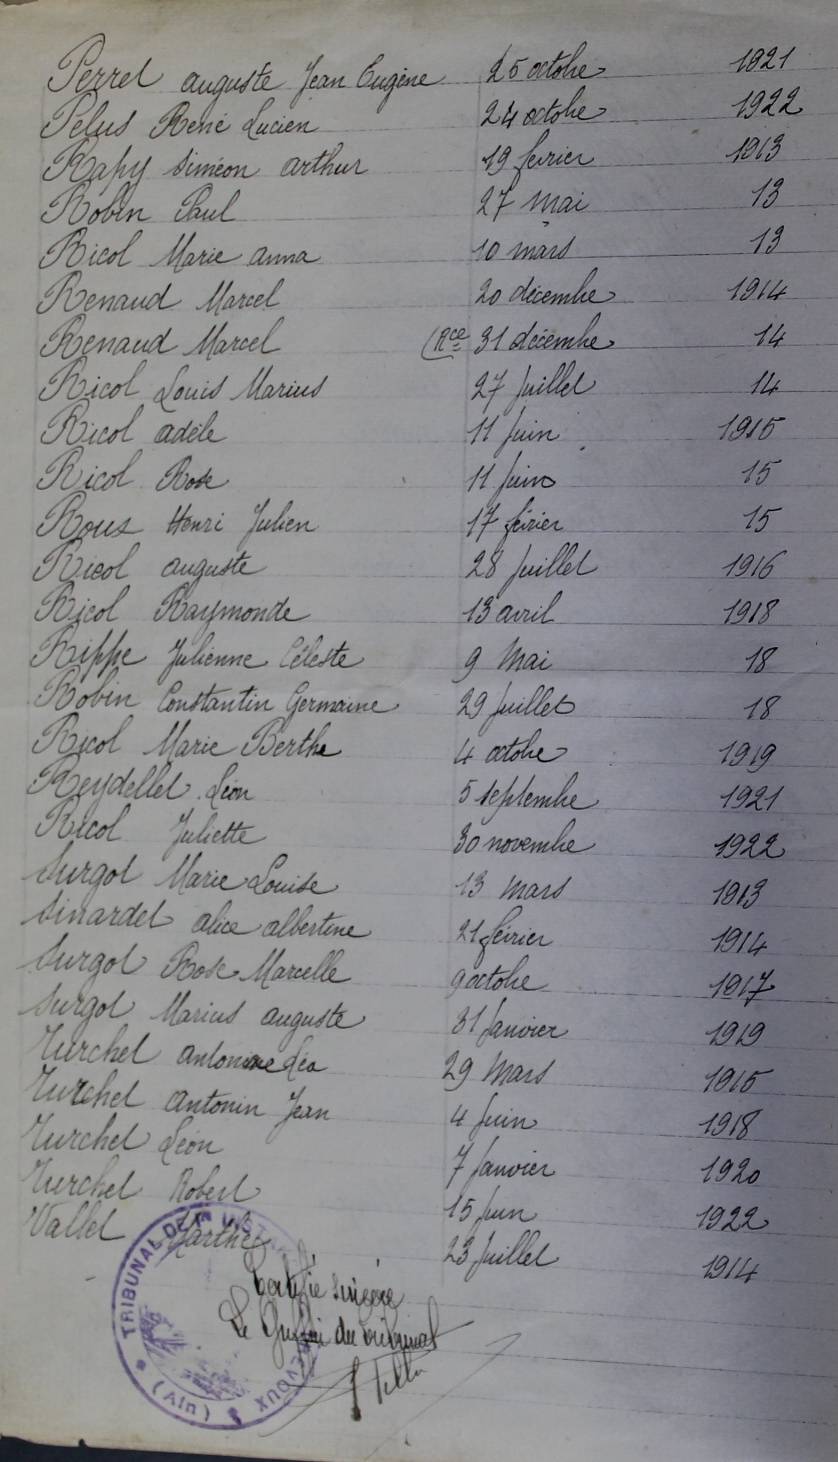 Perret auguste Jean Eugène 25 octobre 1921
Pelus René Lucien 24 octobre 1922
Rapy Siméon arthur 19 février 1913
Robin Paul 27 Mai 13
Ricol Marie anna 10 mars 13
Renaud Marcel 20 décembre 1914
Renaud Marcel (Rce 31 décembre 14
Ricol Louis Marius 27 Juillet 14
Ricol adèle 11 Juin 1915
Ricol Rose 11 Juin 15
Roux Henri Julien 17 février 15
Ricol auguste 28 Juillet 1916
Ricol Raymonde 13 avril 1918
Rippe Julienne Céleste 9 Mai 18
Robin Constantin Germaine 29 Juillet 18
Ricol Marie Berthe 4 octobre 1919
Reydellet Léon 5 septembre 1921
Ricol Juliette 30 novembre 1922
Surgot Marie Louise 13 Mars 1913
Sinardet alice albertine 21 février 1914
Surgot Rose Marcelle 9 octobre 1917
Surgot Marius auguste 31 Janvier 1919
Turchet antonine Léa 29 Mars 1915
Turchet Antonin Jean 4 Juin 1918
Turchet Léon 7 Janvier 1920
Turchet Robert 15 Juin 1922
Vallet Marthe 23 Juillet 1914
Certifié sincère
Le Greffier du tribunal
TRIBUNAL DE 1re INSTANCE
(Ain)